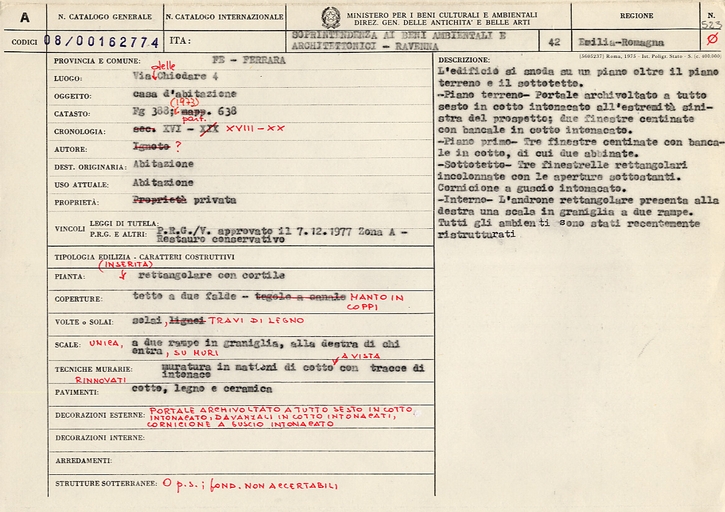 A
N. CATALOGO GENERALE
N. CATALOGO INTERNAZIONALE
MINISTERO PER I BENI CULTURALI E AMBIENTALI
DIREZ. GEN. DELLE ANTICHITA' E BELLE ARTI
REGIONE
N.
523
CODICI
08/00162774
ITA:
SOPRINTENDENZA AI BENI AMBIENTALI E
ARCHITETTONICI - RAVENNA
42
Emilia-Romagna
Ø
PROVINCIA E COMUNE: FE - FERRARA
LUOGO: Via delle Chiodare 4
OGGETTO: casa d'abitazione
CATASTO: Fg 388; (1973) mapp. part. 638
CRONOLOGIA: sec. XVI - XIX XVIII-XX
AUTORE: Ignoto ?
DEST. ORIGINARIA: Abitazione
USO ATTUALE: Abitazione
PROPRIETÀ: Proprietà privata
VINCOLI
LEGGI DI TUTELA:
P.R.G. E ALTRI: P.R.G./V. approvato il 7.12.1977 Zona A -
Restauro conservativo
TIPOLOGIA EDILIZIA - CARATTERI COSTRUTTIVI
(INSERITA)
PIANTA: rettangolare con cortile
COPERTURE: tetto a due falde - tegole a canale MANTO IN
COPPI
VOLTE o SOLAI: solai, lignei TRAVI DI LEGNO
SCALE: UNICA, a due rampe in graniglia, alla destra di chi
entra, SU MURI
A VISTA
TECNICHE MURARIE: muratura in mattoni di cotto con tracce di
intonaco
RINNOVATI
PAVIMENTI: cotto, legno e ceramica
DECORAZIONI ESTERNE: PORTALE ARCHIVOLTATO A TUTTO SESTO IN COTTO
INTONACATO, DAVANZALI IN COTTO INTONACATI,
CORNICIONE A GUSCIO INTONACATO
DECORAZIONI INTERNE:
ARREDAMENTI:
STRUTTURE SOTTERRANEE: O p.s.; FOND. NON ACCERTABILI
(5685237) Roma, 1975 - Ist. Poligr. Stato - S. (c. 400.000)
DESCRIZIONE:
L'edificio si snoda su un piano oltre il piano
terreno e il sottotetto.
-Piano terreno- Portale archivoltato a tutto
sesto in cotto intonacato all'estremità sini-
stra del prospetto; due finestre centinate
con bancale in cotto intonacato.
-Piano primo- Tre finestre centinate con banca-
le in cotto, di cui due abbinate.
-Sottotetto- Tre finestrelle rettangolari
incolonnate con le aperture sottostanti.
Cornicione a guscio intonacato.
-Interno- L'androne rettangolare presenta alla
destra una scala in graniglia a due rampe.
Tutti gli ambienti sono stati recentemente
ristrutturati